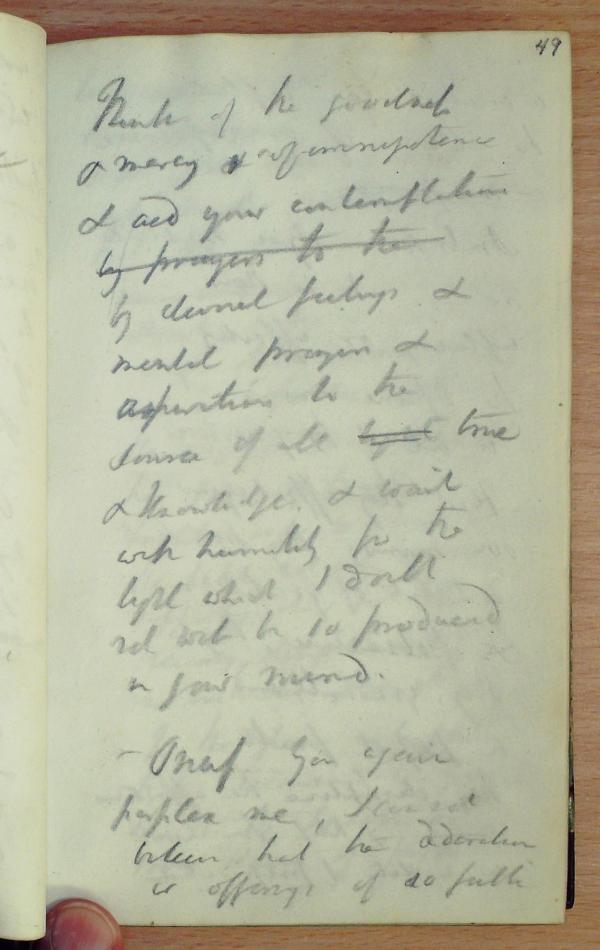 49
Think of the goodness
& mercy & of omnipotence
& aid your contemplation
by prayers to the
by eternal feelings &
mental prayers &
aspirations to the
source of all light true
& knowledge. & wait
with humility for the
light which I doubt
not will be so produced
in your mind.
- Onuf You again
perplex me, I can not
believe that the adoration
or offerings of so feeble